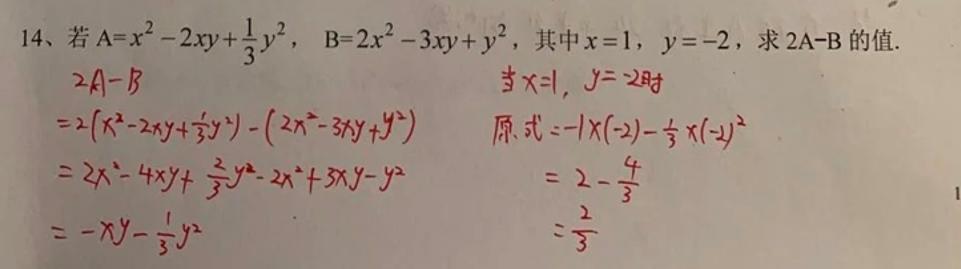 14、若 A=x²-2xy+1/3y², B=2x²-3xy+y², 其中 x=1, y=-2, 求 2A-B 的值.
2A-B
=2(x²-2xy+1/3y²)-(2x²-3xy+y²)
=2x²-4xy+2/3y²-2x²+3xy-y²
=-xy-1/3y²
当x=1, y=-2时
原式=-1×(-2)-1/3×(-2)²
=2-4/3
=2/3
1